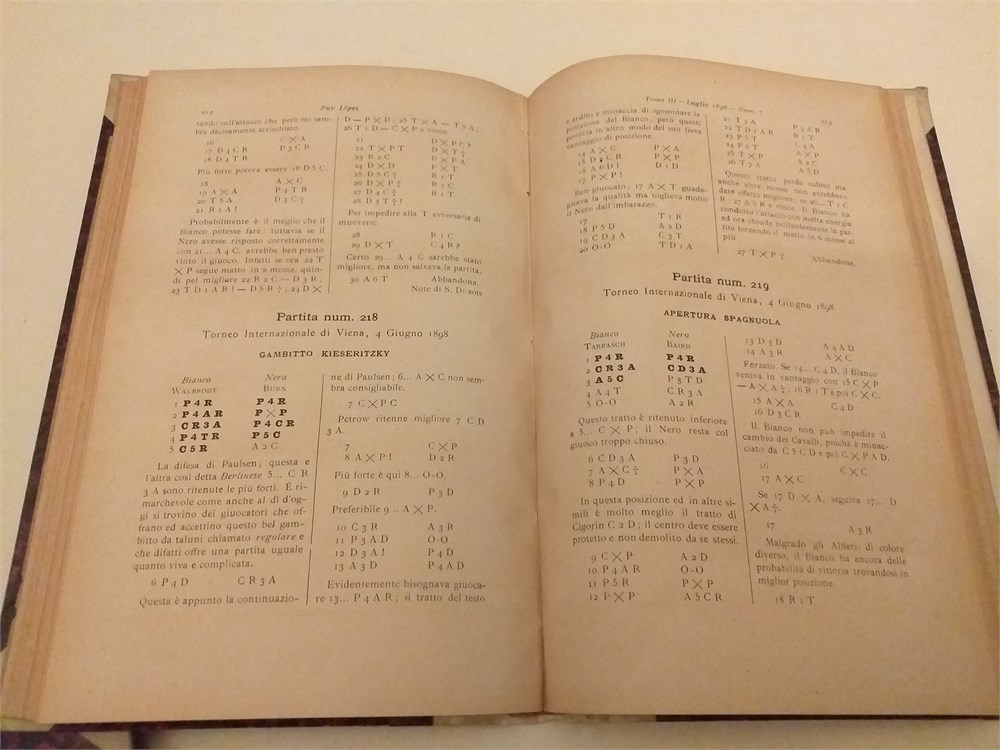 212
Ruy López
tando sull'attacco che però mi sem-
bra decisamente arrischiato.
16 C ✕ C
17 D 4 C R P 3 C R
18 D 4 T R
Più forte poteva essere 18 D 5 C.
18 A ✕ C
19 A ✕ A P 4 T R
20 T 5 A D 3 C †
21 R 1 A !
Probabilmente è il meglio che il
Bianco potesse fare: tuttavia se il
Nero avesse risposto correttamente
con 21... A 4 C, avrebbe ben presto
vinto il giuoco. Infatti se ora 22 T
✕ P segue matto in 2 mosse, quin-
di pel migliore 22 R 2 C — D 3 R;
23 T D 1 A R ! — D 5 R †; 24 D ✕
Partita num. 218
Torneo Internazionale di Viena, 4 Giugno 1898
GAMBITTO KIESERITZKY
Bianco Nero
WALBRODT BURN
1 P 4 R P 4 R
2 P 4 A R P ✕ P
3 C R 3 A P 4 C R
4 P 4 T R P 5 C
5 C 5 R A 2 C
La difesa di Paulsen; questa e
l'altra così detta Berlinese 5... C R
3 A sono ritenute le più forti. È ri-
marchevole come anche al dì d'og-
gi si trovino dei giuocatori che of-
frano ed accettino questo bel gam-
bitto da taluni chiamato regolare e
che difatti offre una partita uguale
quanto viva e complicata.
6 P 4 D C R 3 A
Questa è appunto la continuazio-
D — P ✕ D; 25 T ✕ A — T 7 A;
26 T 1 D — C ✕ P e vince.
21 D ✕ P C ?
22 T ✕ P T D ✕ T †
23 R 2 C D ✕ P A
24 D ✕ D P ✕ T
25 D 5 C † R 1 T
26 D ✕ P † R 1 C
27 D 4 C † R 1 T
28 D 3 T † !
Per impedire alla T avversaria di
muoversi.
28 R 1 C
29 D ✕ T C 4 R ?
Certo 29... A 4 C sarebbe stato
migliore, ma non salvava la partita.
30 A 6 T Abbandona.
Note di S. Dubois
ne di Paulsen; 6... A ✕ C non sem-
bra consigliabile.
7 C ✕ P C
Petrow ritenne migliore 7 C D
3 A.
7 C ✕ P
8 A ✕ P ! D 2 R
Più forte è qui 8... O-O.
9 D 2 R P 3 D
Preferibile 9 .. A ✕ P.
10 C 3 R A 3 R
11 P 3 A D O-O
12 D 3 A ! P 4 D
13 A 3 D P 4 A D
Evidentemente bisognava giuoca-
re 13... P 4 A R; il tratto del testo
Tomo III — Luglio 1898 — Num. 7
213
è ardito e minaccia di sgominare la
posizione del Bianco, però questi
profitta in altro modo del suo lieve
vantaggio di posizione.
14 A ✕ C P ✕ A
15 D 4 C R P ✕ P
16 A 6 D ! D 1 D
17 P ✕ P !
Ben giuocato; 17 A ✕ T guada-
gnava la qualità ma toglieva molto
il Nero dall'imbarazzo.
17 T 1 R
18 P 5 D A 2 D
19 C D 3 A C 3 T
20 O-O T D 1 A
21 T 2 A P 3 A R
22 T D 1 A R R 1 T
23 P 5 T C 4 A
24 P 6 T A ✕ P
25 T ✕ P A 2 C
26 T 7 A A 5 D
Questo tratto perde subito ma
anche altre mosse non avrebbero
dato effetto migliore; se 26... T 1 C
R; 27 A 5 R e vince. Il Bianco ha
condotto l'attacco con molta energia
ed ora chiude brillantemente la par-
tita forzando il matto in 6 mosse al
più.
27 T ✕ P † Abbandona.
Partita num. 219
Torneo Internazionale di Viena, 4 Giugno 1898.
APERTURA SPAGNUOLA
Bianco Nero
TARRASCH BAIRD
1 P 4 R P 4 R
2 C R 3 A C D 3 A
3 A 5 C P 3 T D
4 A 4 T C R 3 A
5 O-O A 2 R
Questo tratto è ritenuto inferiore
a 5... C ✕ P; il Nero resta col
giuoco troppo chiuso.
6 C D 3 A P 3 D
7 A ✕ C † P ✕ A
8 P 4 D P ✕ P
In questa posizione ed in altre si-
mili è molto meglio il tratto di
Cigorin C 2 D; il centro deve essere
protetto e non demolito da se stessi.
9 C ✕ P A 2 D
10 P 4 A R O-O
11 P 5 R P ✕ P
12 P ✕ P A 5 C R
13 D 3 D A 4 A D
14 A 3 R A ✕ C
Forzato. Se 14... C 4 D, il Bianco
veniva in vantaggio con 15 C ✕ P
— A ✕ A †; 16 R 1 T e poi C ✕ C.
15 A ✕ A C 4 D
16 D 3 C R
Il Bianco non può impedire il
cambio dei Cavalli, poichè è minac-
ciato da C 5 C D e poi C ✕ P A D.
16 C ✕ C
17 A ✕ C
Se 17 D ✕ A, seguiva 17... D
✕ A †.
17 A 3 R
Malgrado gli Alfieri di colore
diverso, il Bianco ha ancora delle
probabilità di vittoria trovandosi in
miglior posizione.
18 R 1 T